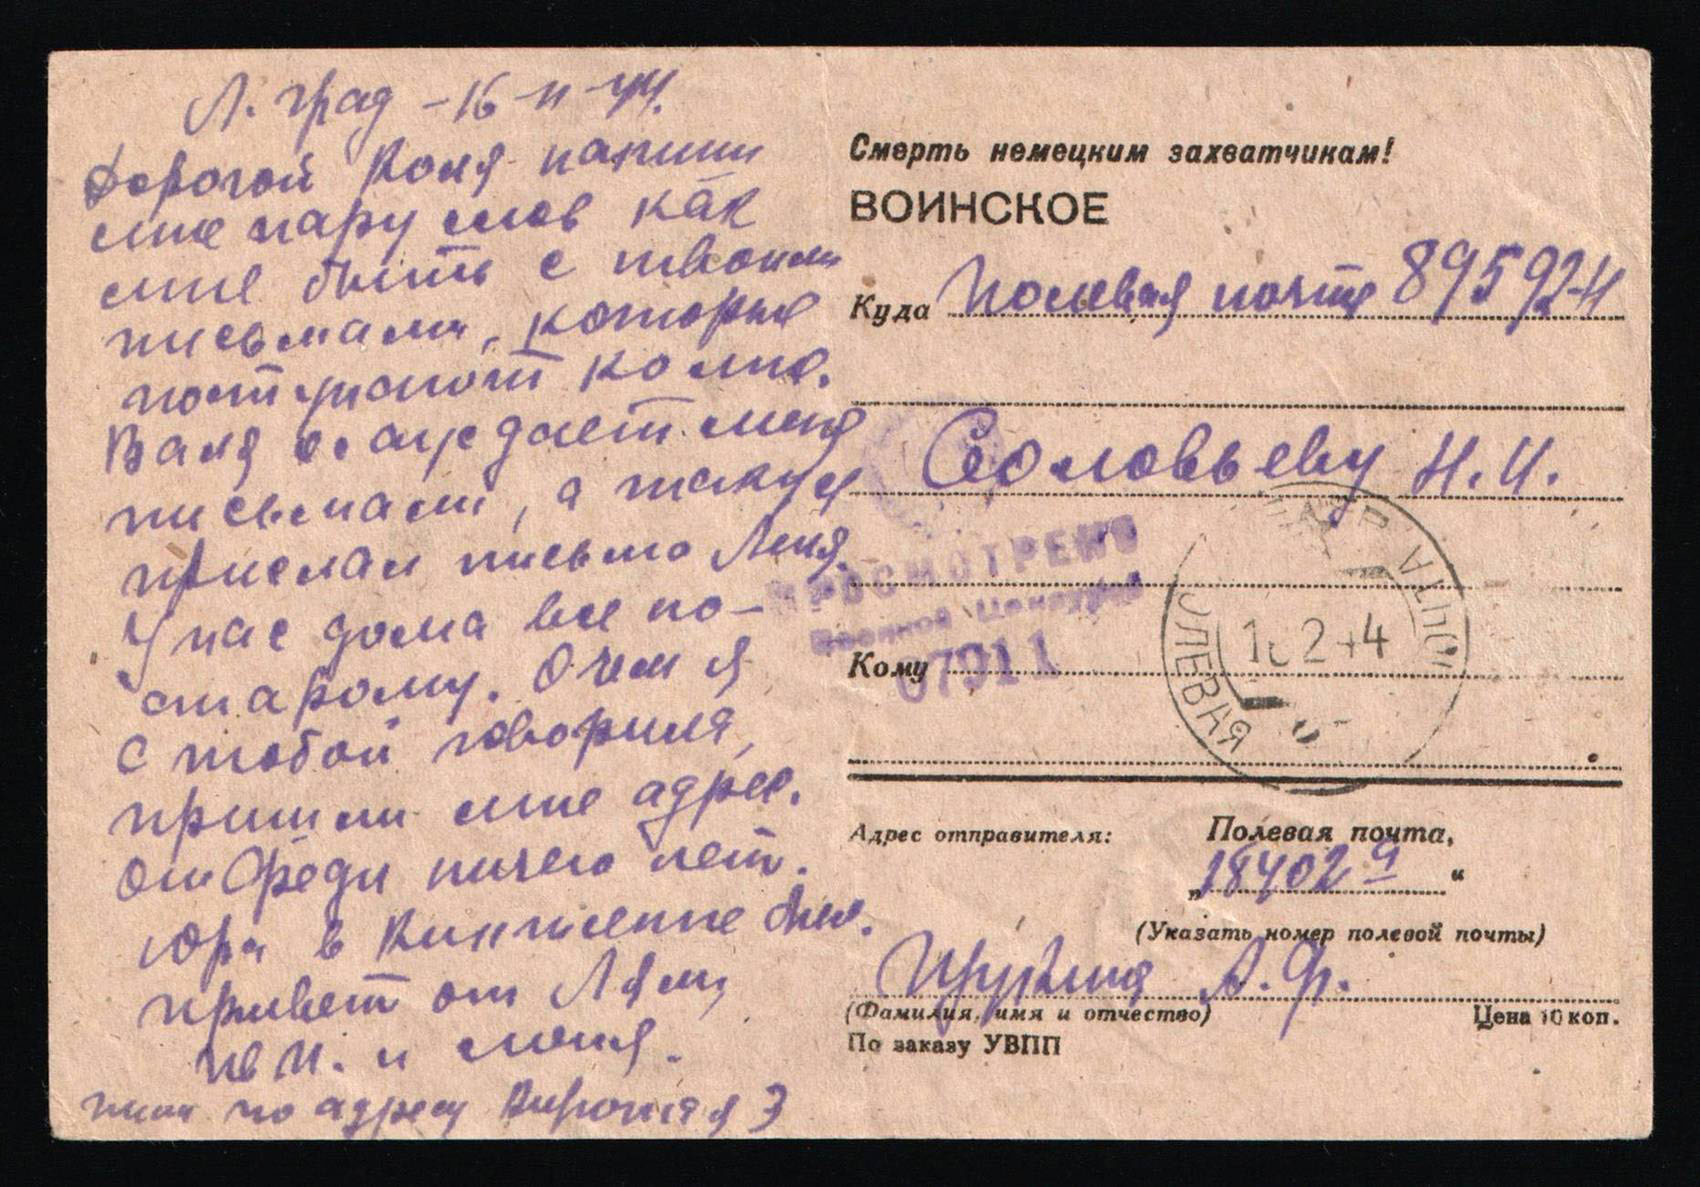 Л. град -16-II-44.
Дорогой Коля напиши
мне пару слов как
мне быть с твоими
письмами, которые
поступают ко мне.
Валя осаждает меня
письмами, а также
прислал письмо Леня.
У нас дома все по-
старому. О чем я
с тобой говорила,
пришли мне адрес.
От Феди ничего нет.
Юра в
привет от Ляли,
и меня.
пиши по адресу Кирочная 3
Смерть немецким захватчикам!
ВОИНСКОЕ
Куда Полевая почта 89592-Н
Соловьеву Н. И.
ПРОСМОТРЕНО
Военной Цензурой
07911
Кому
ПОЛЕВАЯ ПОЧТА
2 44
Адрес отправителя: Полевая почта,
„18402 "
(Указать номер полевой почты)
А. Ф.
(Фамилия, имя и отчество)
Цена 10 коп.
По заказу УВПП